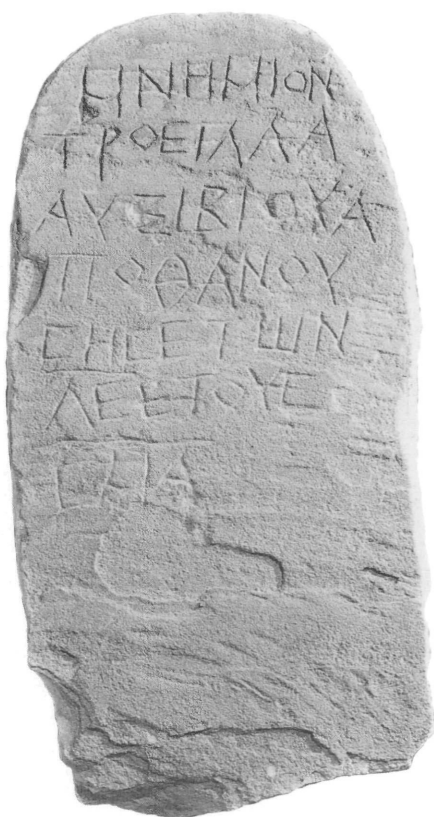 ΜΝΗΜΙΟΝ
ΤΡΟΕΙΛΛΑ
ΑΥΞΙΒΙΟΥΑ
ΠΟΘΑΝΟΥ
ϹΗϹΕΤΩΝ
ΛΕΕΤΟΥϹ